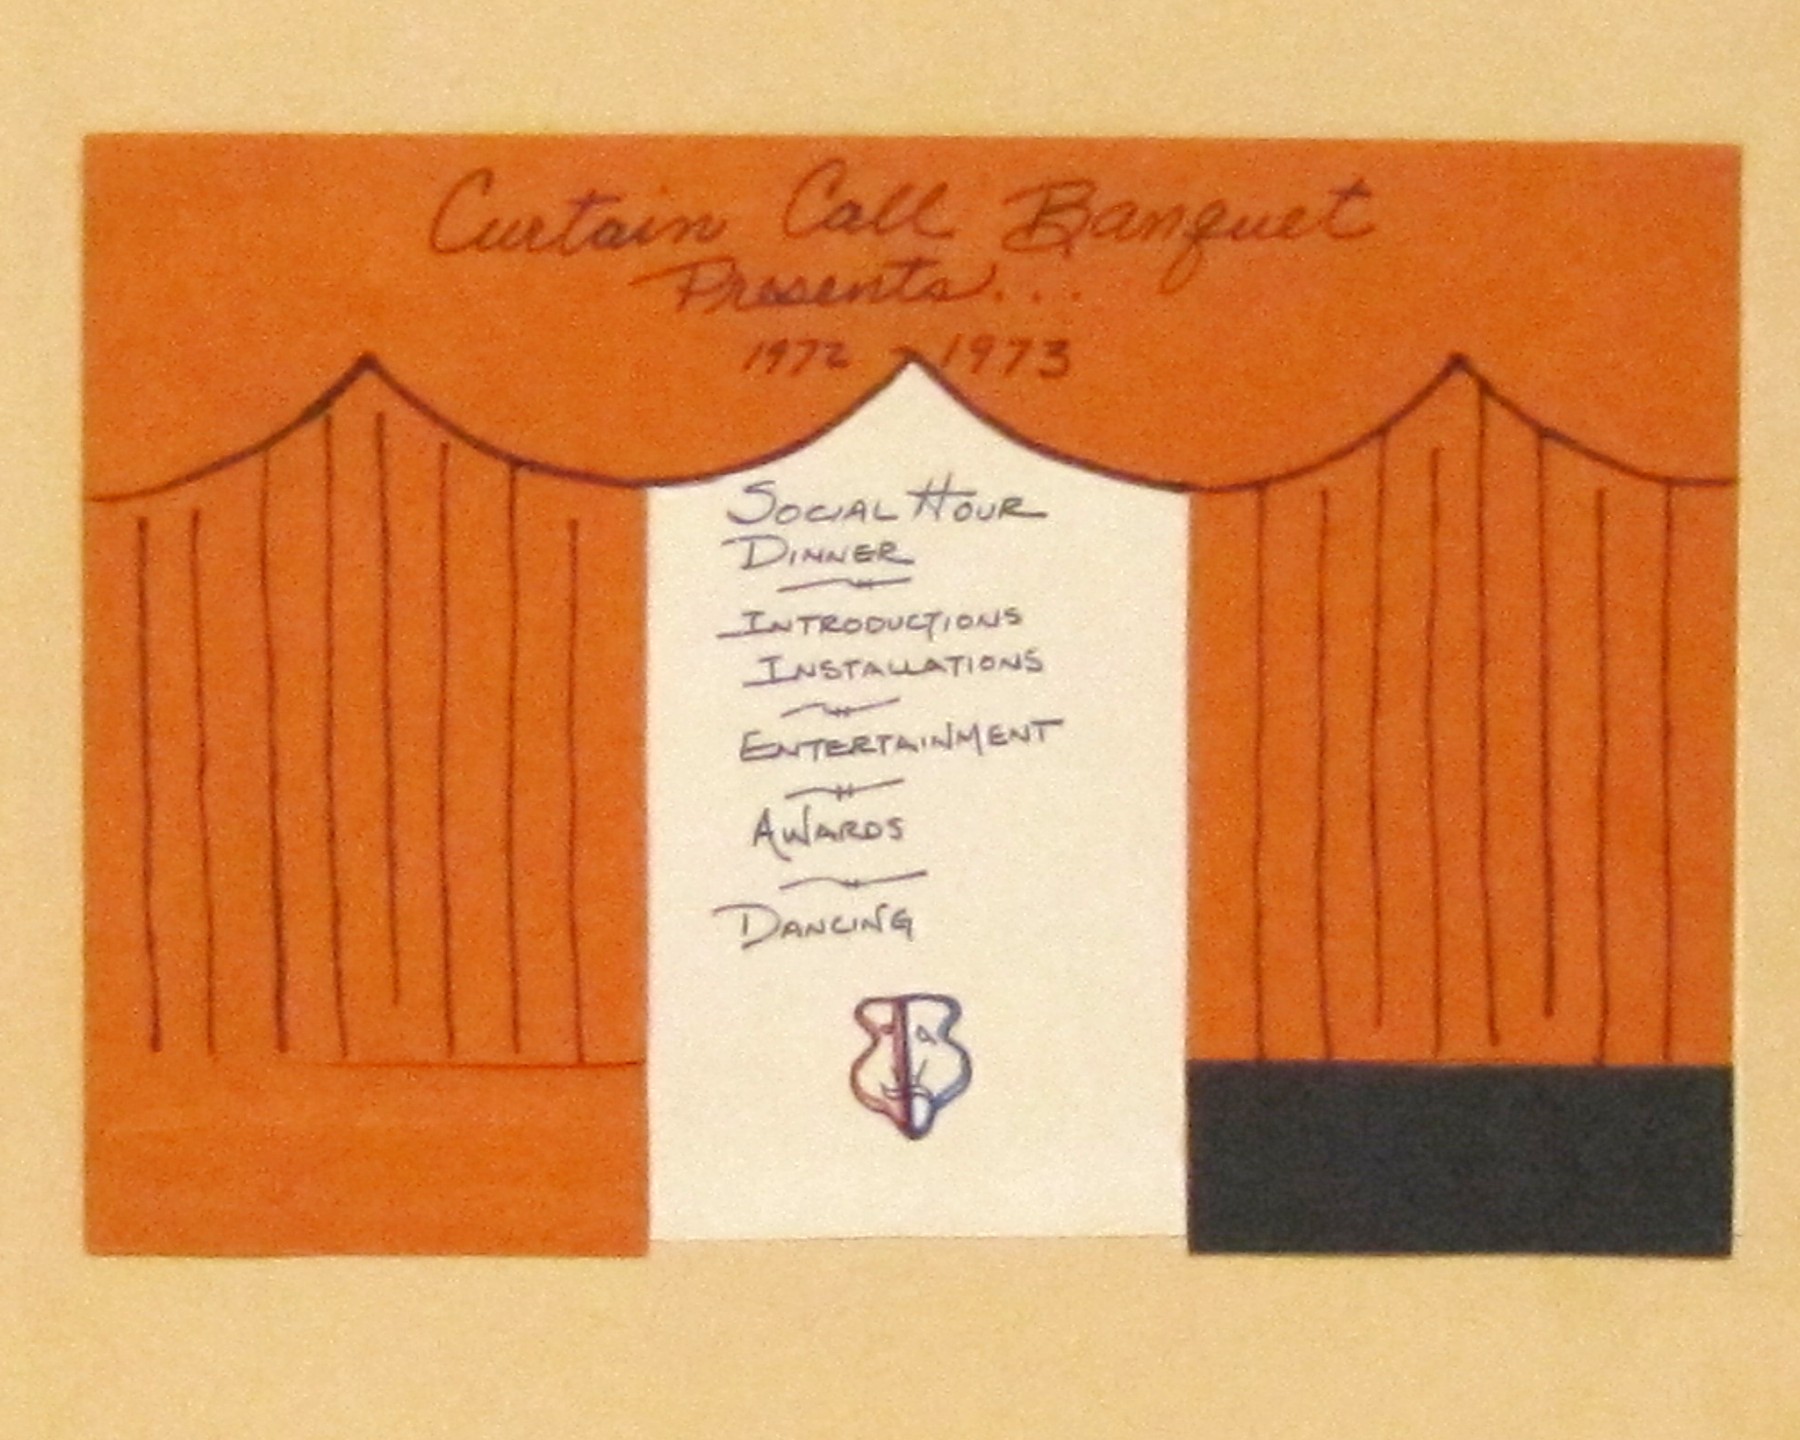 Curtain Call Banquet
Presents...
1972 - 1973
SOCIAL HOUR
DINNER
INTRODUCTIONS
INSTALLATIONS
ENTERTAINMENT
AWARDS
DANCING